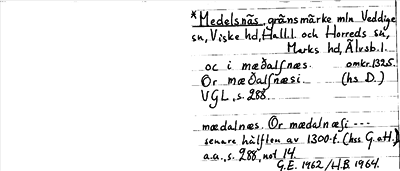 *Medelsnäs, gränsmärke mln Veddige
sn, Viske hd, Hall.l. och Horreds sn,
Marks hd, Älvsb.l.
oc i mæðalſnæs. omkr. 1325.
Or mæðalſnæsi. (hs D.)
VGL, s. 288.
mædalnæs. Or mædalnæſi ---
senare hälften av 1300-t. (hss G. o H.)
a.a., s. 288, not 14.
G.E. 1962/H.B. 1964.